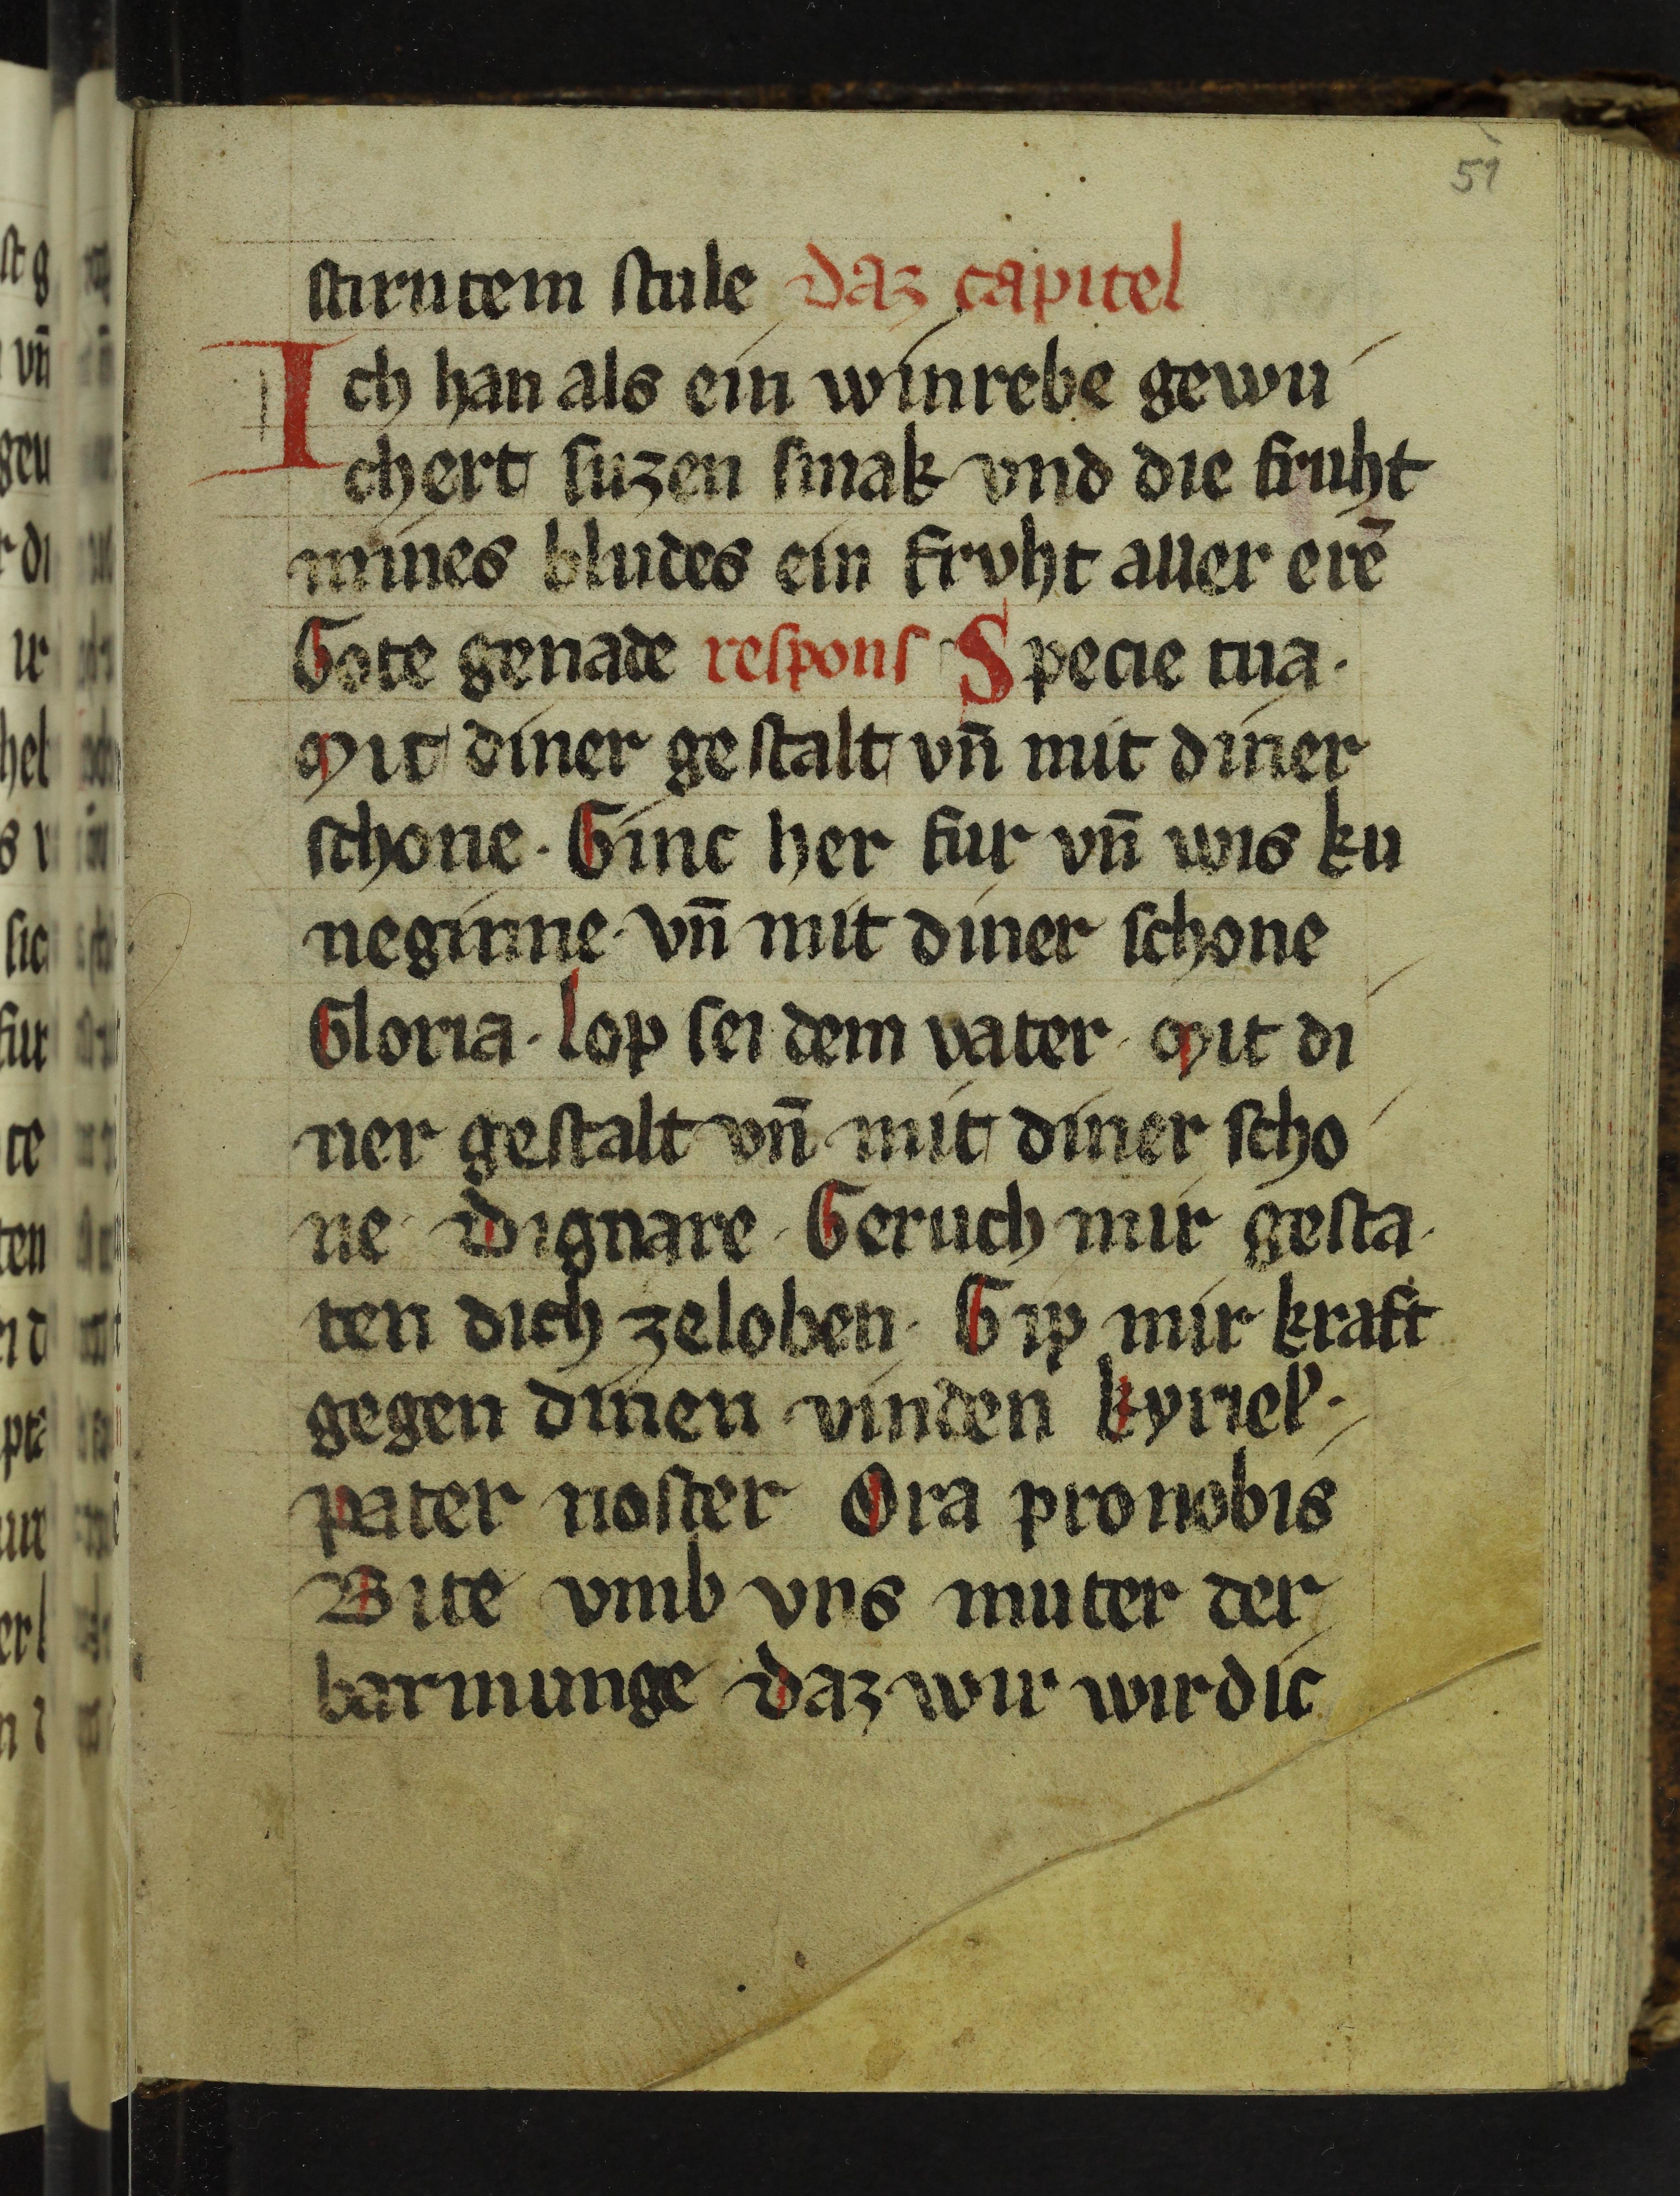 51
stirntem stule daz capitel
Ich han als ein winrebe gewu
chert suzen smak vnd die fruht
mines bludes ein frvht aller erē
Gote genade respons Specie tua.
Mit diner gestalt vn̄ mit diner
schone. Ginc her fur vn̄ wis ku
neginne. vn̄ mit diner schone
Gloria. lop sei dem vater. Mit di
ner gestalt vn̄ mit diner scho
ne. Dignare. Geruch mir gesta
ten dich zeloben. Gip mir kraft
gegen dinen vinden kyriel'.
pater noster Ora pro nobis
Bite vmb vns muter der
barmunge daz wir wirdic